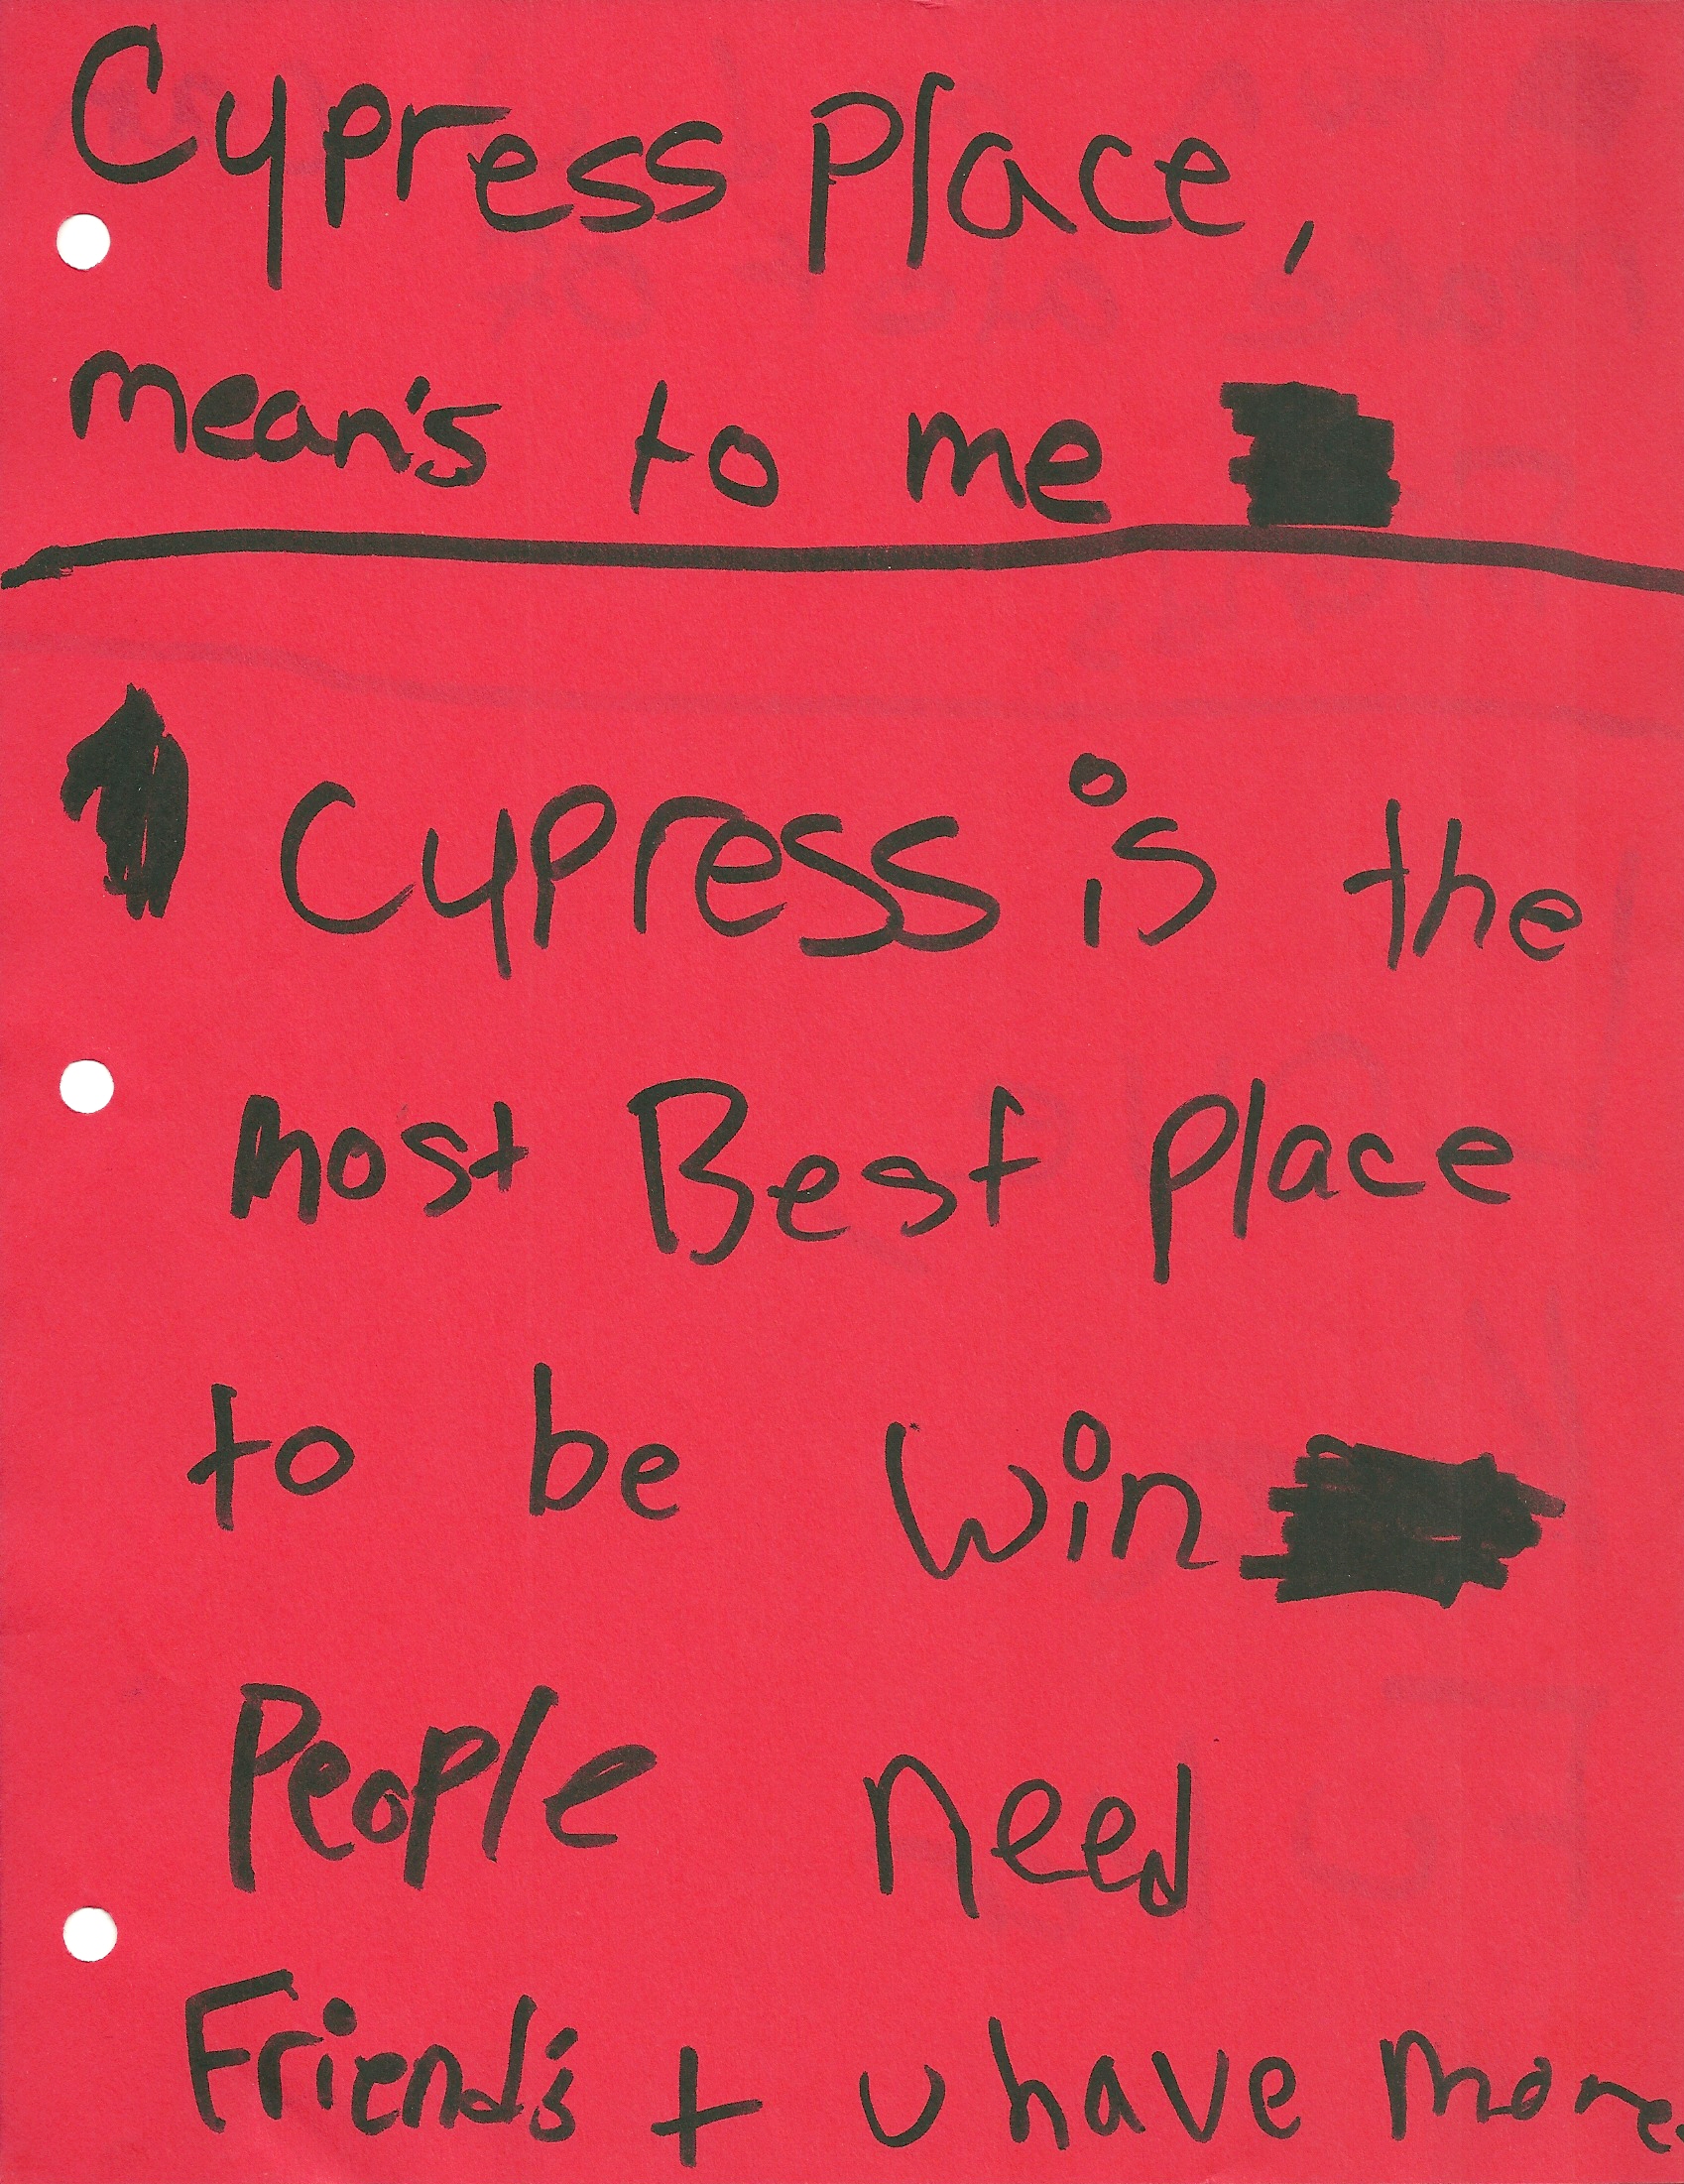 Cypress place,
mean's to me
Cypress is the
most Best place
to be win
People need
Friend's + u have more